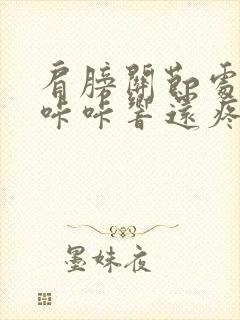 肩膀關節處
咔咔響還疼
墨妹夜